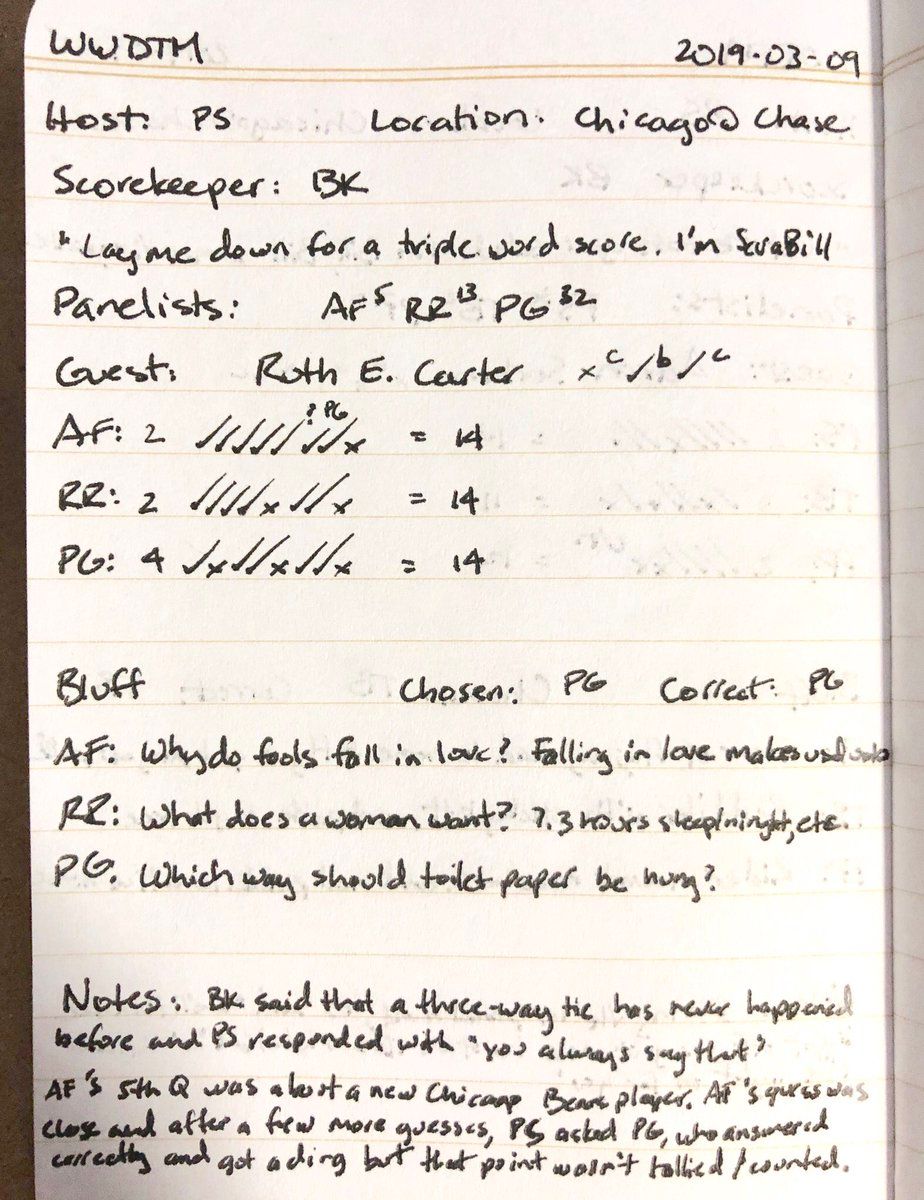 WWDTM 2019-03-09
Host: PS Location: Chicago @ Chase
Scorekeeper: BK
"Lay me down for a triple word score. I'm ScraBill
Panelists: AF⁵ RR¹³ PG³²
Guest: Ruth E. Carter ×ᶜ ✓ᵇ ✓ᶜ
? PG
AF: 2 ✓✓✓✓✓✓✓× = 14
RR: 2 ✓✓✓✓×✓✓× = 14
PG: 4 ✓×✓✓×✓✓× = 14
Bluff Chosen: PG Correct: PG
AF: Why do fools fall in love? Falling in love makes us
RR: What does a woman want? 7.3 hours sleep/night, etc.
PG. Which way should toilet paper be hung?
Notes: BK said that a three-way tie has never happened
before and PS responded with "you always say that"
AF's 5th Q was about a new Chicago Bears player. AF's guess was
close and after a few more guesses, PS asked PG, who answered
correctly and got a ding but that point wasn't tallied/counted.